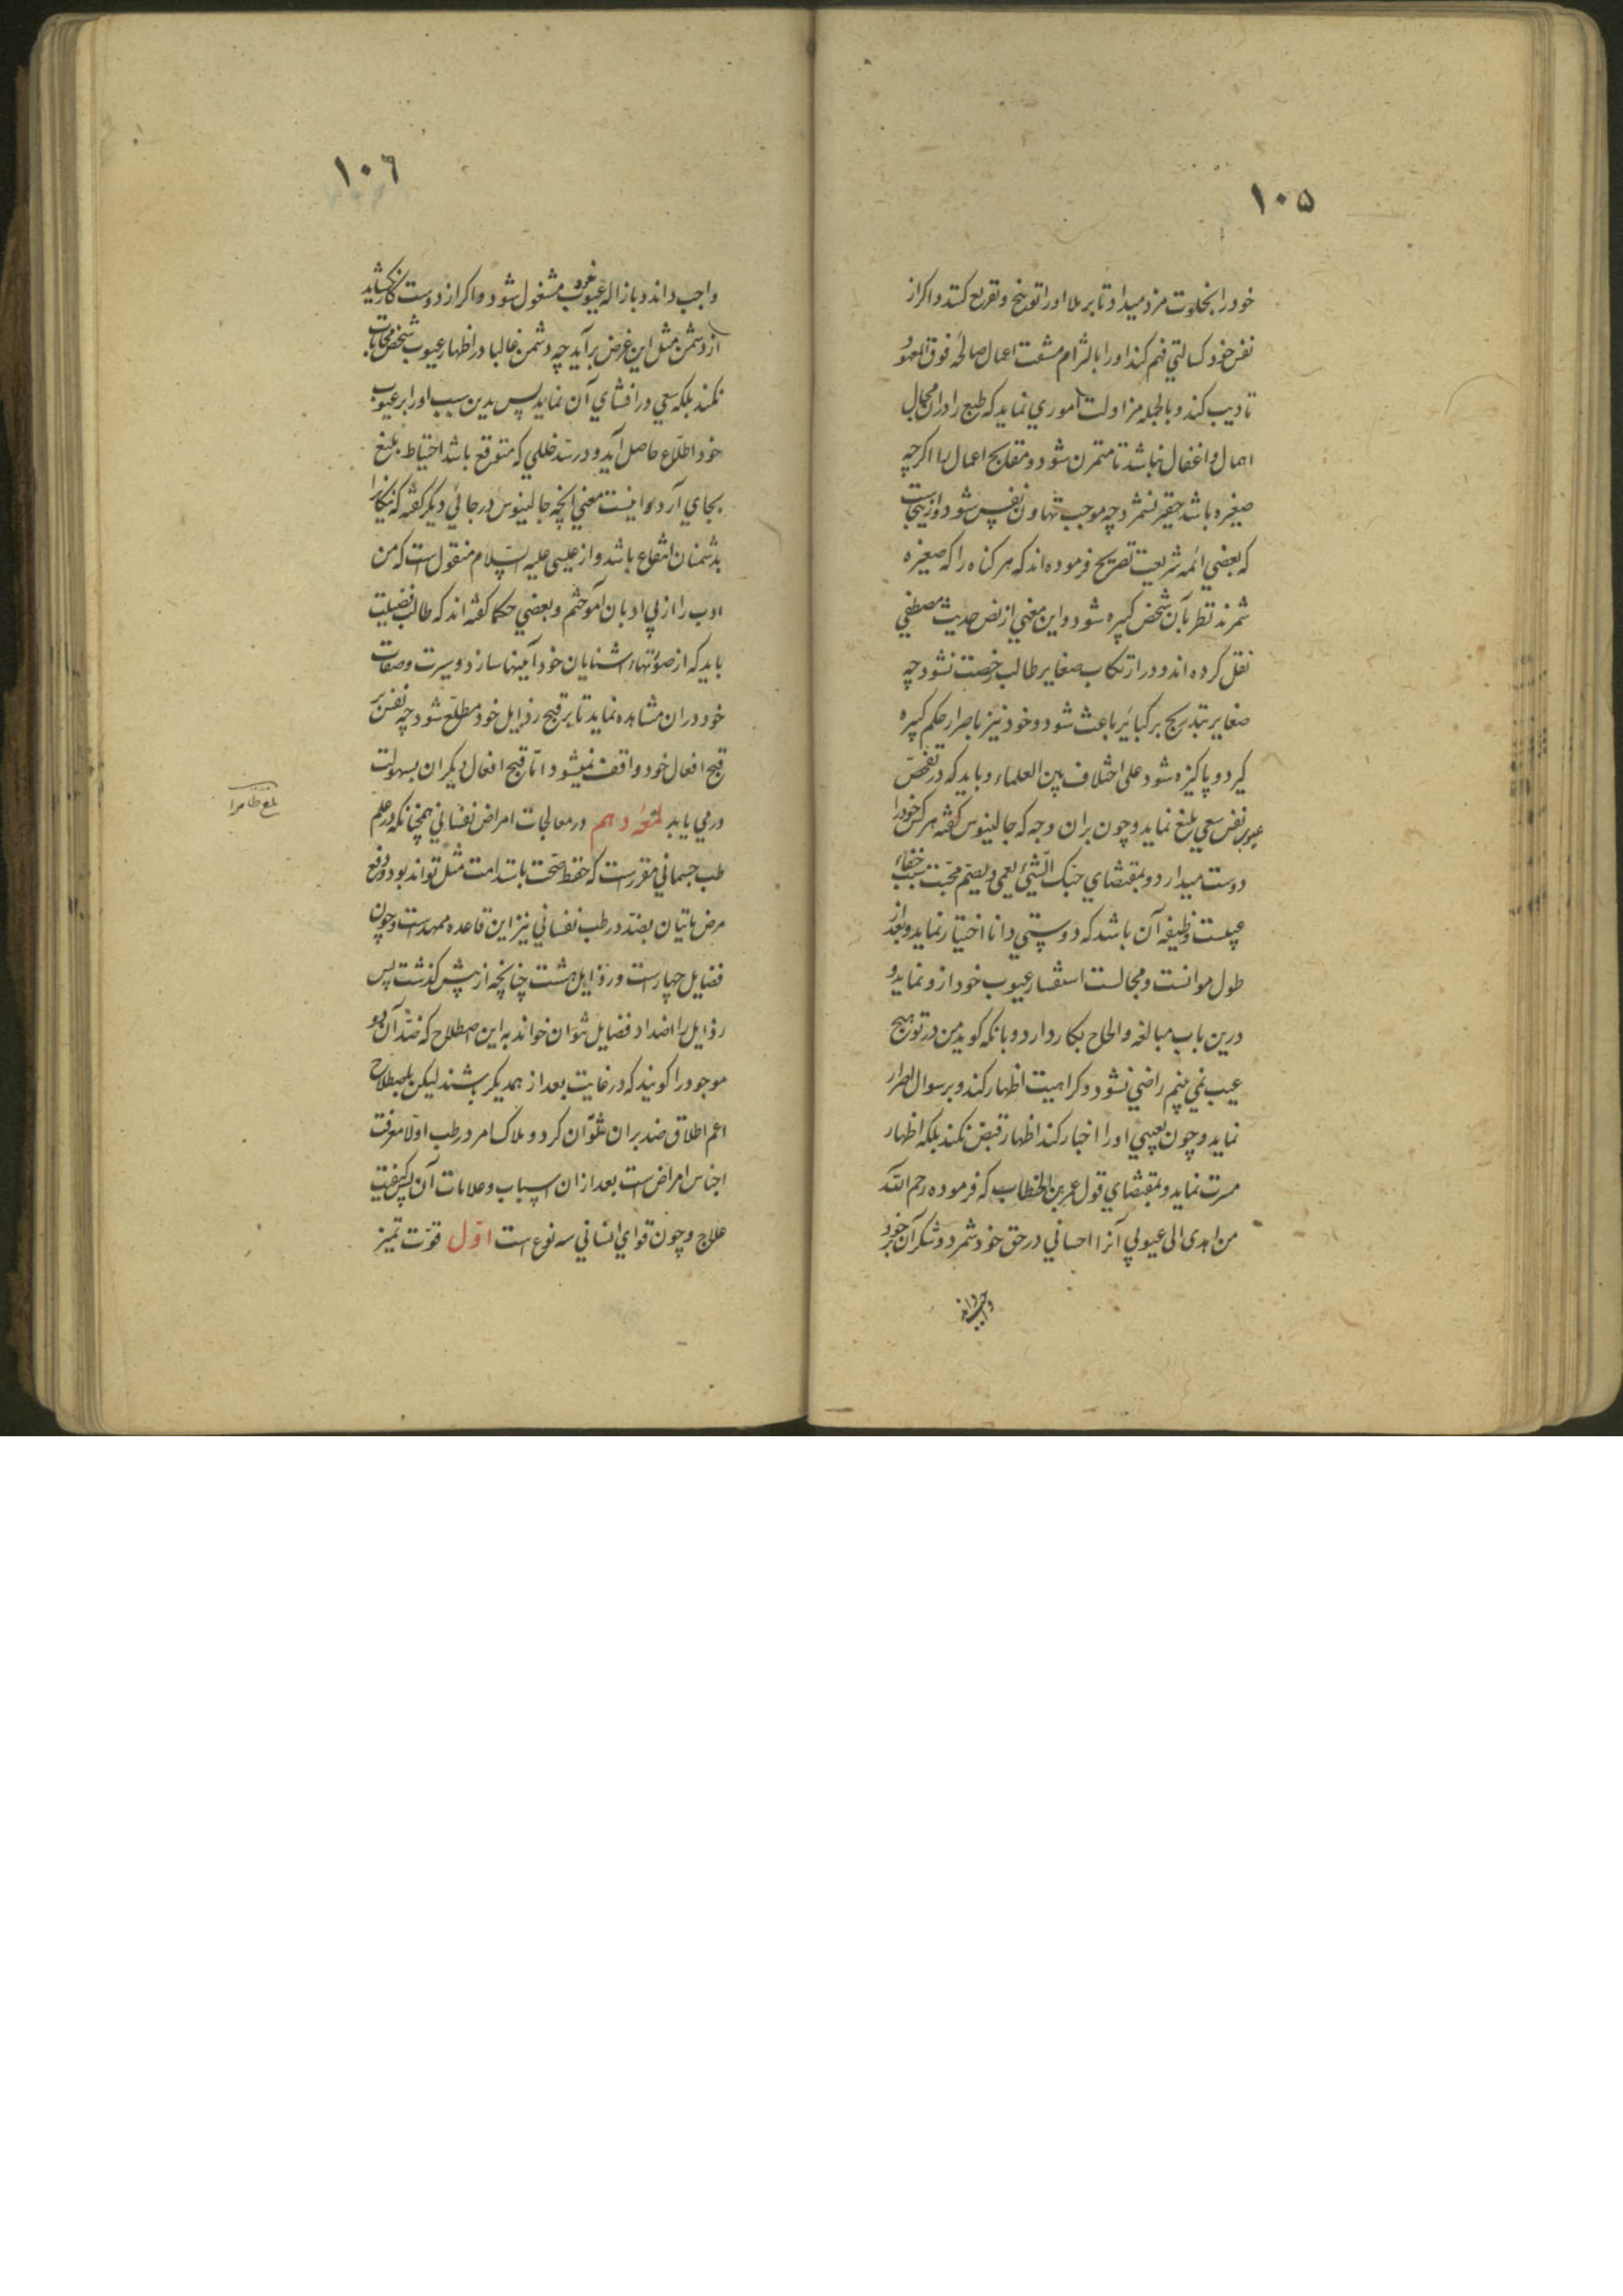 ١٠۵
خود را بخلوت مزد میداد تا بر ملا او را توبیخ و تقریع کنند و اکر از
نفس خود کسالتی فهم کند او را بالتزام مشقت اعمال صالحه فوق المعهود
تادیب کند و بالجمله مزاولت اموري نماید که طبع را دران مجال
اهمال و اغفال نباشد تا متمرن شود و مقابح اعمال را اکرچه
صغیره باشد حقیر نشمرد چه موجب تهاون نفس شود و ازینجاست
که بعضي ائمه شریعت تصریح فرموده اند که هر کناه را که صغیره
شمرند نظر بآن شخص کبیره شود و این معني از نص حدیث مصطفي
نقل کرده اند و در ارتکاب صغایر طالب رخصت نشود چه
صغایر بتدریج بر کبائر باعث شود و خود نیز باصرار حکم کبیره
کیرد و پاکیزه شود علی اختلاف بین العلماء و باید که در تفحص
عیوب نفس سعي بلیغ نماید و چون بران وجه که جالینوس کفته هر کس خود را
دوست میدارد و بمقتضاي حبک الشيء یعمی و یصم محبت سبب خفاء
عیبست وظیفه آن باشد که دوستي دانا اختیار نماید و بعد از
طول موانست و مجالست استفسار عیوب خود از و نماید و
درین باب مبالغه و الحاح بکار دارد و بانکه کوید من در تو هیچ
عیب نمي بینم راضي نشود و کراهیت اظهار کند و بر سوال اصرار
نماید و چون بعیبي او را اخبار کند اظهار قبض نکند بلکه اظهار
مسرت نماید و بمقتضاي قول عمر بن الخطاب که فرموده رحم الله
من اهدی الی عیوبي آنرا احساني در حق خود شمرد و شکر آن بر خود
واجب داند
١٠٦
واجب داند و بازاله عیوب مشغول شود و اکر از دوست کار نکشاید
از دشمن مثل این غرض برآید چه دشمن غالبا در اظهار عیوب شخص محابات
نکند بلکه سعي در افشاي آن نماید پس بدین سبب او را بر عیوب
خود اطلاع حاصل آید و در سد خللي که متوقع باشد احتیاط بلیغ
بجاي آرد و اینست معني آنچه جالینوس در جائي دیکر کفته که نیکانرا
بدشمنان انتفاع باشد و از عیسی علیه السلام منقول است که من
ادب را از بي ادبان آموختم و بعضي حکما کفته اند که طالب فضیلت
باید که از صورتهاء اشنایان خود آینها سازد و سیرت و صفات
خود دران مشاهده نماید تا بر قبح رذایل خود مطلع شود چه نفس بر
قبح افعال خود واقف نمیشود اما قبح افعال دیکران بسهولت
در مي یابد لمعهٔ دهم در معالجات امراض نفساني همچنانکه در علم
طب جسماني مقررست که حفظ صحت باستدامت مثل تواند بود و دفع
مرض باتیان بضد در طب نفساني نیز این قاعده ممهدست و چون
فضایل چهارست و رذایل هشت چنانچه از پیش کذشت پس
رذایل را اضداد فضایل نتوان خواند به این اصطلاح که ضد آن دو
موجود را کویند که در غایت بعد از همدیکر باشند لیکن باصطلاح
اعم اطلاق ضد بران توان کرد و ملاک امر در طب اولا معرفت
اجناس امراض است بعد ازان اسباب و علامات آن پس کیفیت
علاج و چون قواي انساني سه نوع است اول قوت تمیز